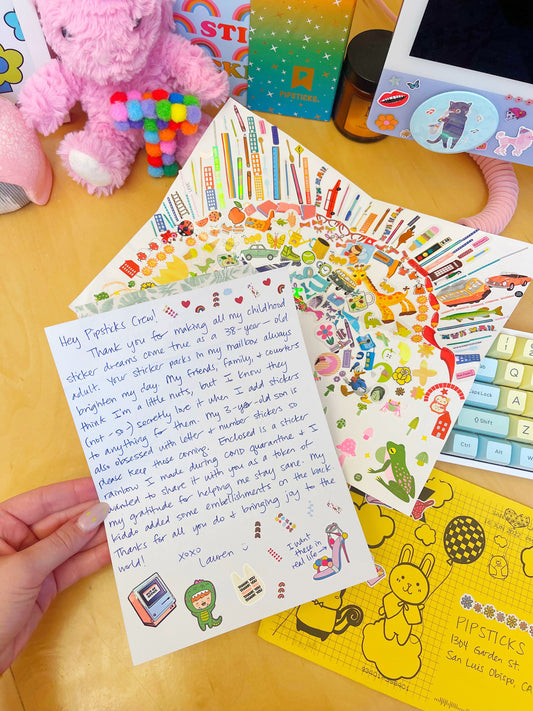 STI
PIPSTICKS.
Hey Pipsticks Crew!
Thank you for making all my childhood
sticker dreams come true as a 38-year-old
adult. Your sticker packs in my mailbox always
brighten my day. My friends, family, & coworkers
think I'm a little nuts, but I know they
(not-so) secretly love it when I add stickers
to anything for them. My 3-year-old son is
also obsessed with letter & number stickers so
please keep these coming. Enclosed is a sticker
rainbow I made during COVID quarantine & I
wanted to share it with you as a token of
my gratitude for helping me stay sane. My
kiddo added some embellishments on the back
Thanks for all you do & bringing joy to the
world!
xoxo
Lauren
I want
these in
real life
CapsLock
Shift
Ctrl
Alt
A
Q
Z
PIPSTICKS
1304 Garden St.
San Luis Obispo, CA